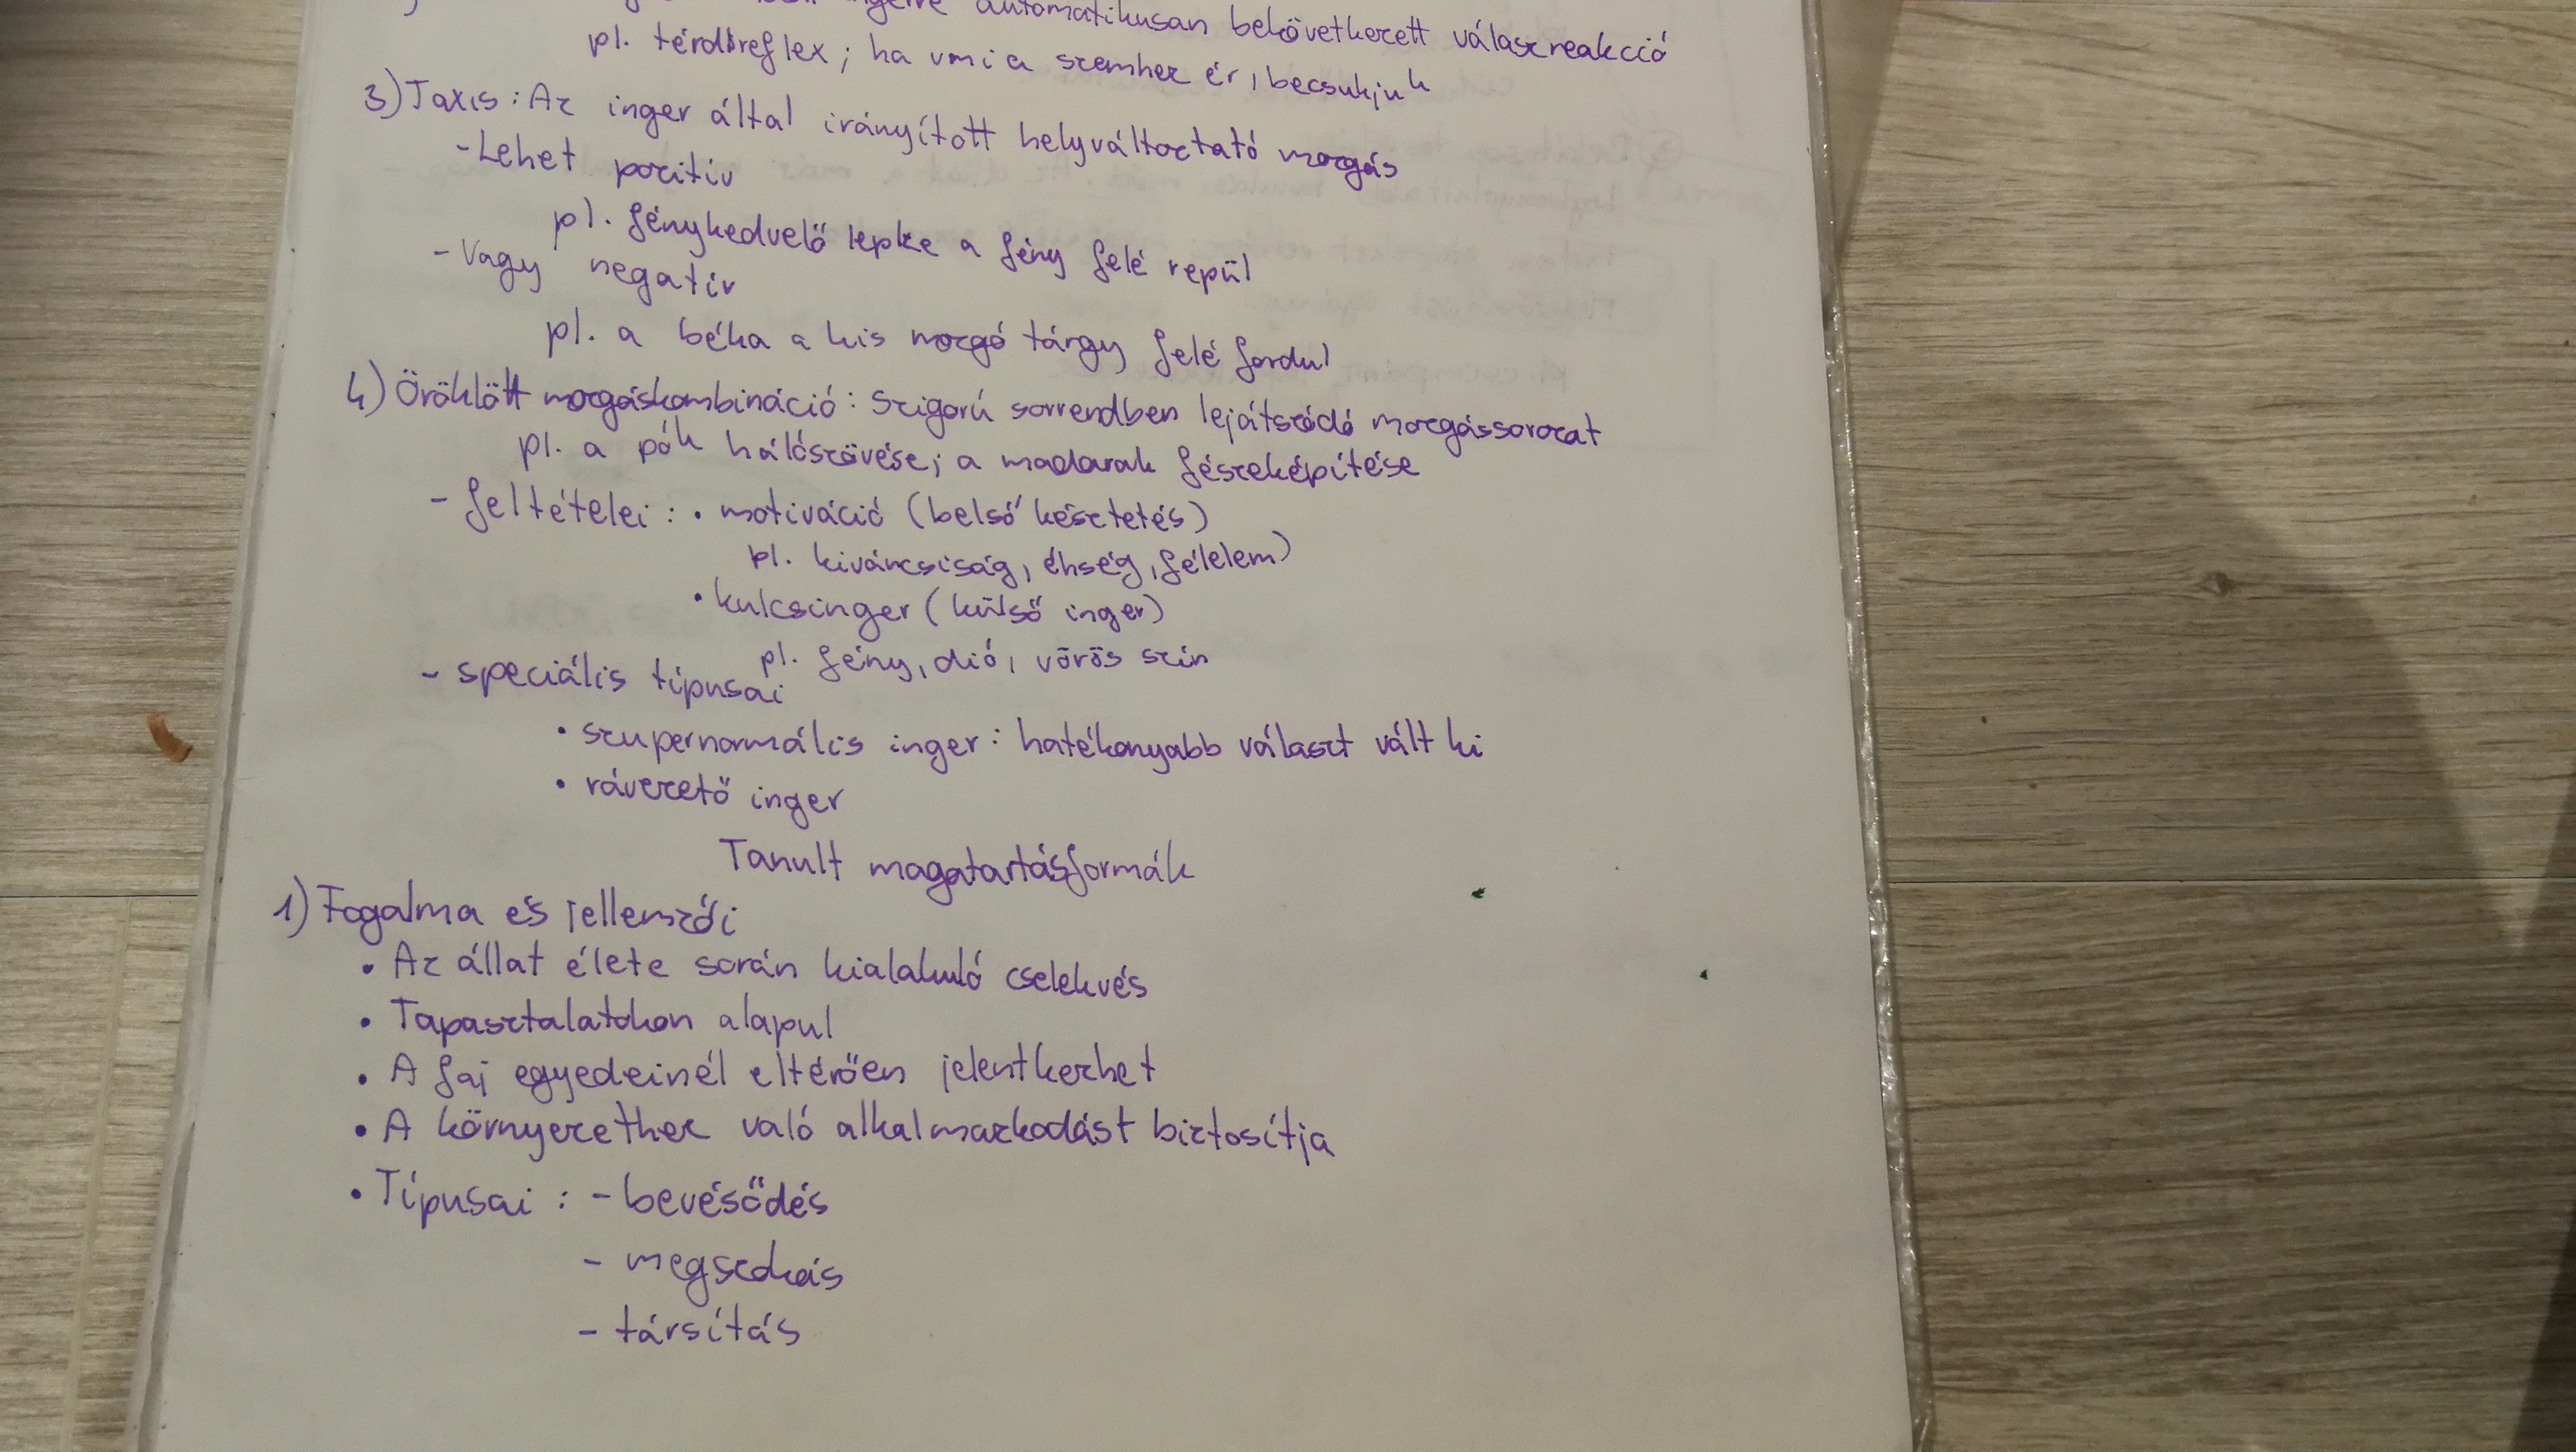 automatikusan bekövetkezett válaszreakció
pl. térdreflex; ha vmi a szemhez ér, becsukjuk
3) Taxis: Az inger által irányított helyváltoztató mozgás
- Lehet pozitív
pl. fénykedvelő lepke a fény felé repül
- Vagy negatív
pl. a béka a kis mozgó tárgy felé fordul
4) Öröklött mozgáskombináció: Szigorú sorrendben lejátszódó mozgássorozat
pl. a pók hálószövése; a madarak fészeképítése
- feltételei: • motiváció (belső késztetés)
pl. kiváncsiság, éhség, félelem)
• kulcsinger (külső inger)
pl. fény, dió, vörös szín
- speciális típusai
• szupernormális inger: hatékonyabb választ vált ki
• rávezető inger
Tanult magatartásformák
1) Fogalma és jellemzői
• Az állat élete során kialakuló cselekvés
• Tapasztalatokon alapul
• A faj egyedeinél eltérően jelentkezhet
• A környezethez való alkalmazkodást biztosítja
• Típusai: - bevésődés
- megszokás
- társítás